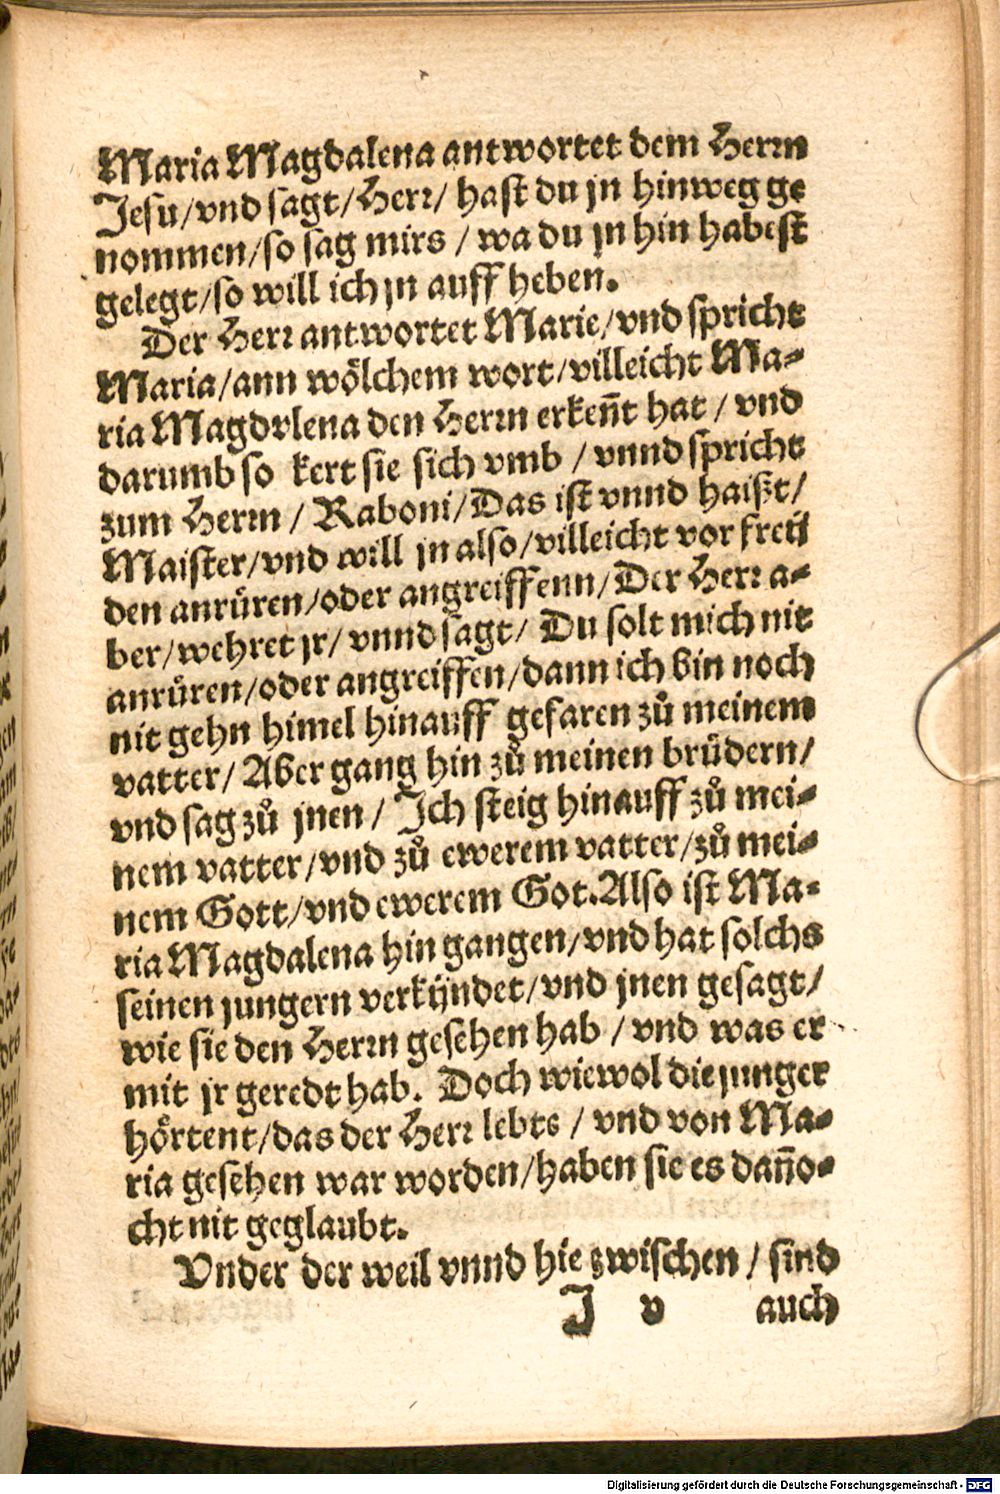 Maria Magdalena antwortet dem Herrn
Jesu/vnd sagt/Herr/ hast du jn hinweg ge
nommen/so sag mirs / wa du jn hin habest
gelegt/so will ich jn auff heben.
Der Herr antwortet Marie/vnd spricht
Maria/ann wölchem wort/villeicht Ma-
ria Magdvlena den Herrn erkeñt hat / vnd
darumb so kert sie sich vmb / vnnd spricht
zum Herrn / Raboni/Das ist vnnd haißt/
Maister/vnd will jn also/villeicht vor freü
den anrüren/oder angreiffenn/Der Herr a-
ber/wehret jr/ vnnd sagt/ Du solt mich nit
anrüren/oder angreiffen/dann ich bin noch
nit gehn himel hinauff gefaren zů meinem
vatter/ Aber gang hin zů meinen brüdern/
vnd sag zů jnen / Ich steig hinauff zů mei-
nem vatter/vnd zů ewerem vatter/zů mei-
nem Gott/vnd ewerem Got.Also ist Ma-
ria Magdalena hin gangen/vnd hat solchs
seinen jungern verkündet/vnd jnen gesagt/
wie sie den Herrn gesehen hab / vnd was er
mit jr geredt hab. Doch wiewol die junger
hörtent/das der Herr lebte / vnd von Ma-
ria gesehen war worden/haben sie es daño-
cht nit geglaubt.
Vnder der weil vnnd hie zwischen / sind
J v auch
Digitalisierung gefördert durch die Deutsche Forschungsgemeinschaft - DFG